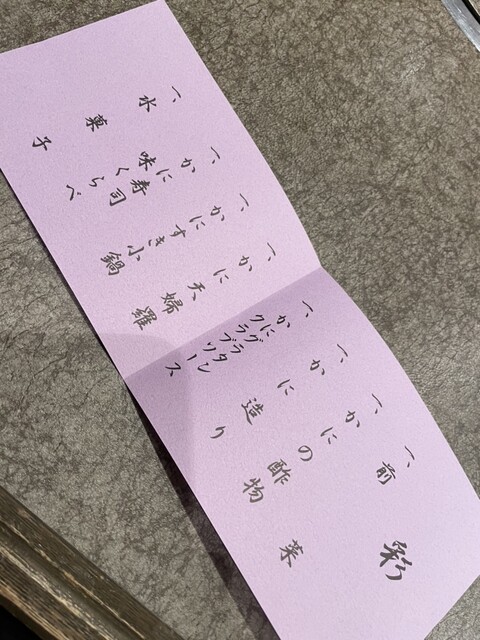 彩
一、前菜
一、かにの酢物
一、かに造り
一、かにグラタン
クラブソース
一、かに天婦羅
一、かにすき小鍋
一、かに寿司
味くらべ
一、水菓子